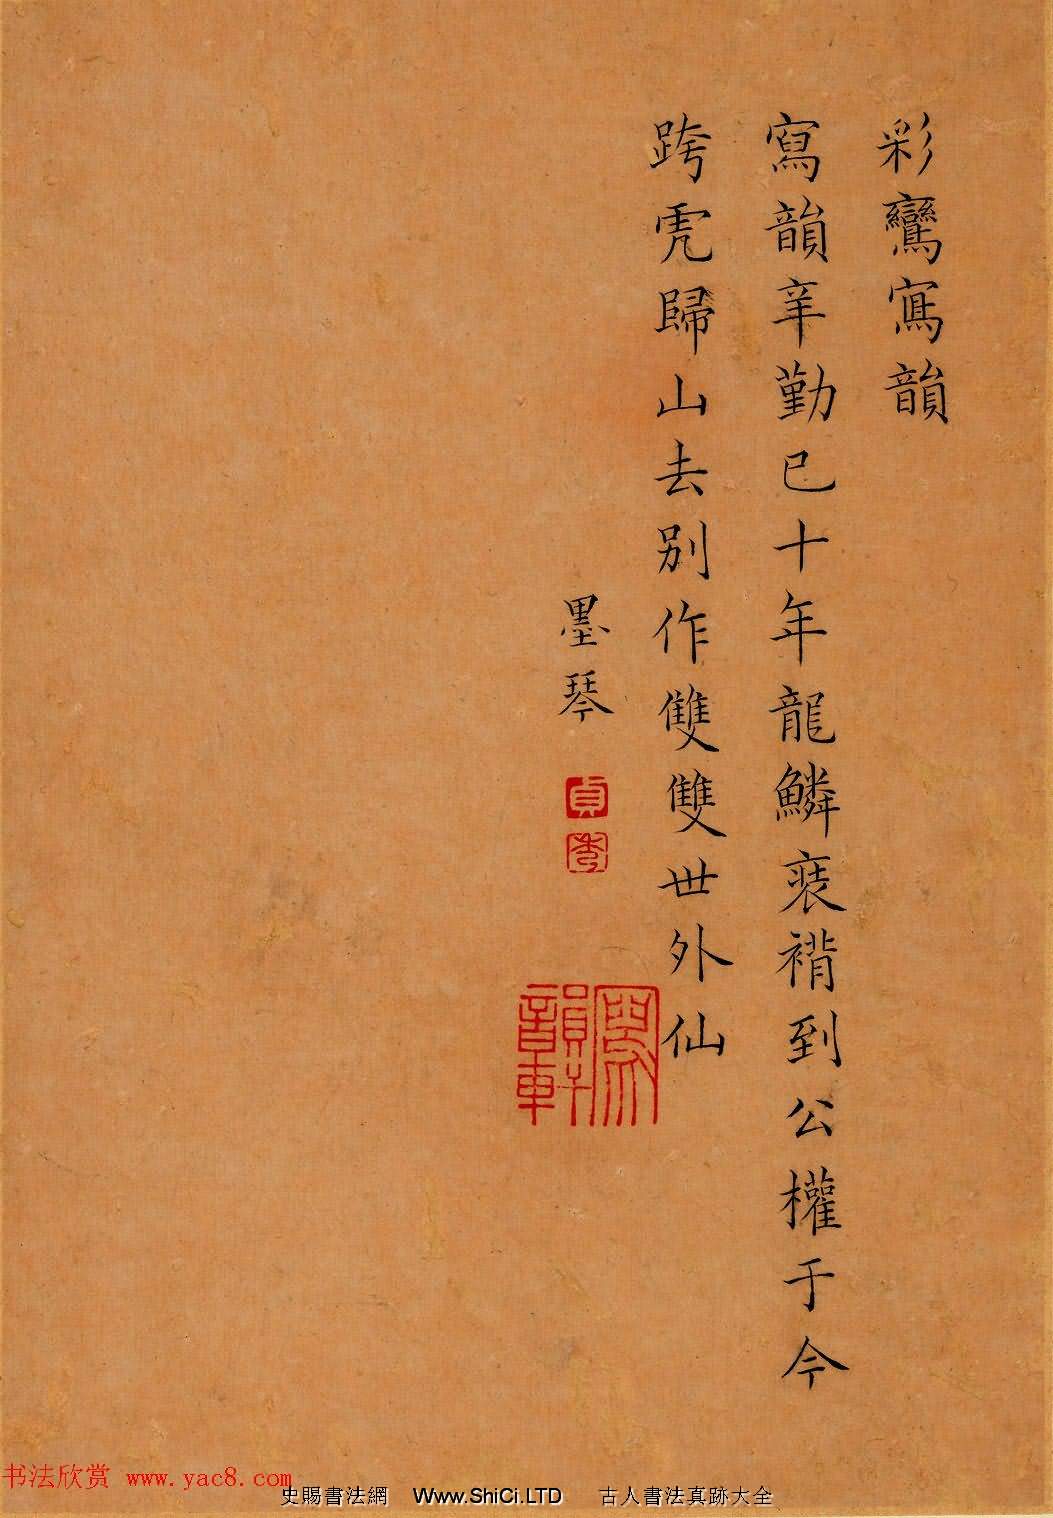 彩鸞寫韻
寫韻辛勤已十年龍鱗裘褙到公權于今
跨虎歸山去別作雙雙世外仙
墨琴
貞
秀
寫韻軒
书法欣赏 www.yac8.com
史賜書法網 Www.ShiCi.LTD 古人書法真跡大全